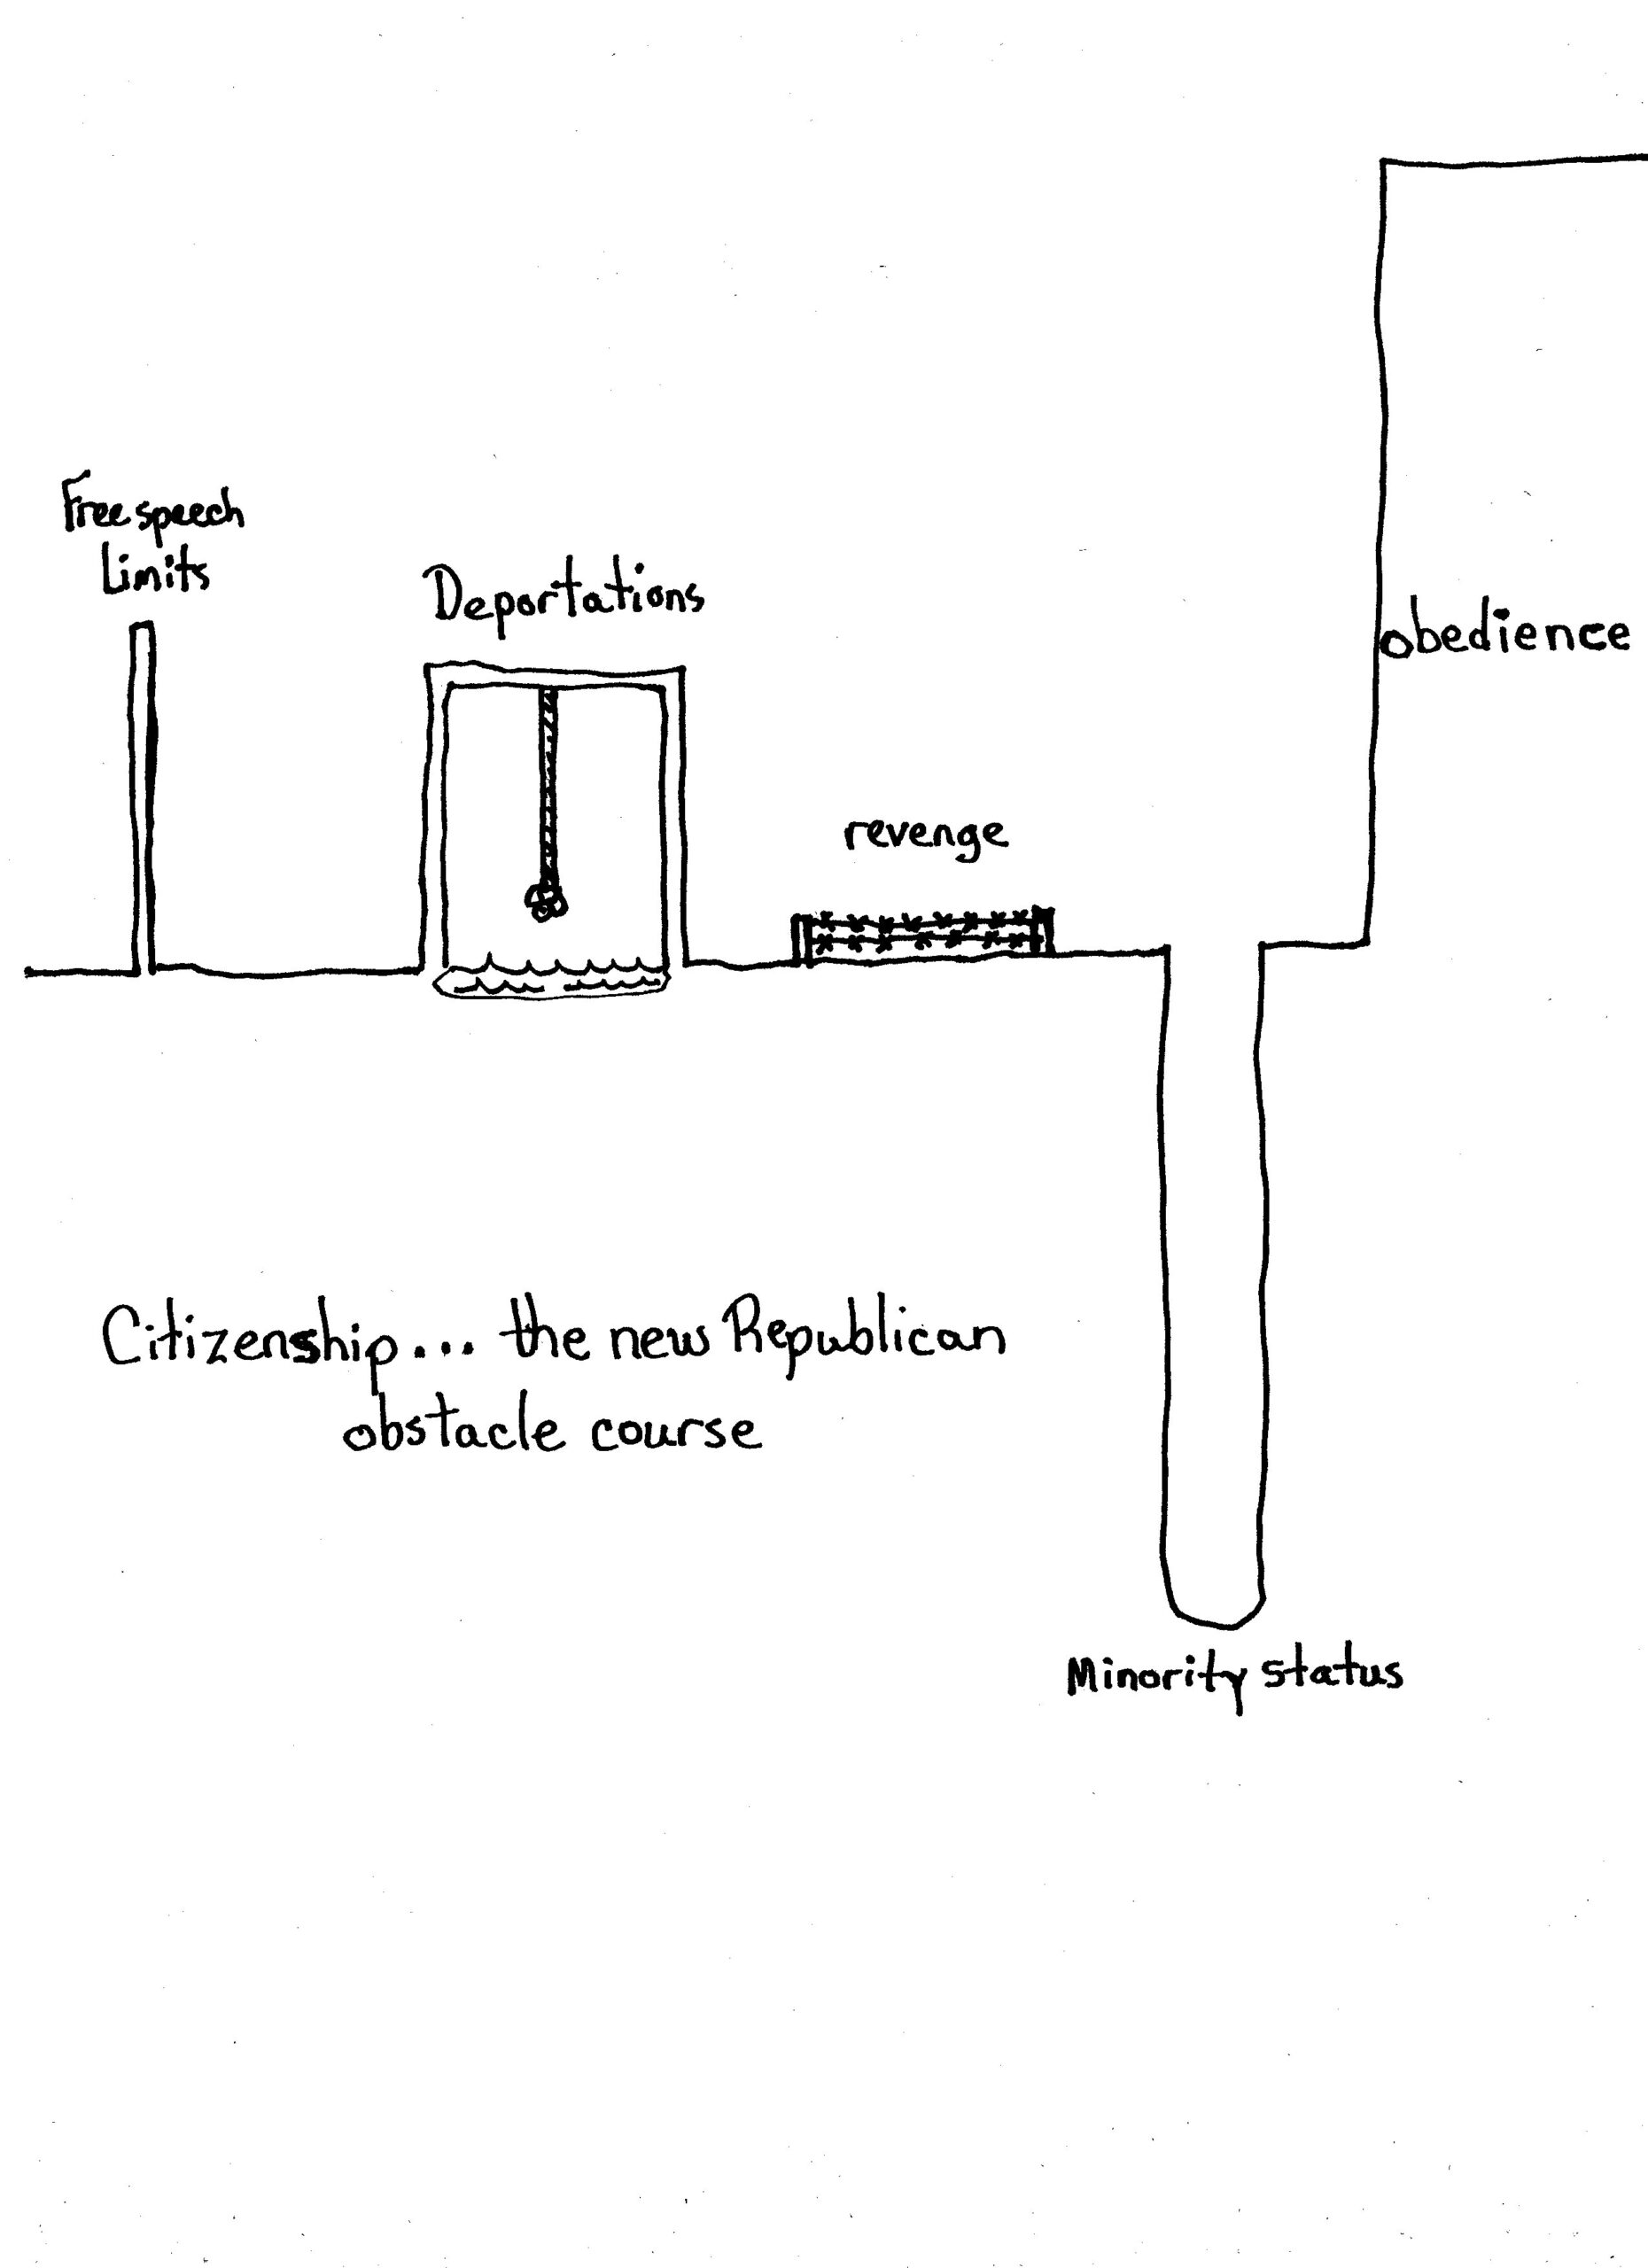 Free speech
Limits
Deportations
revenge
obedience
Citizenship... the new Republican
obstacle course
Minority status